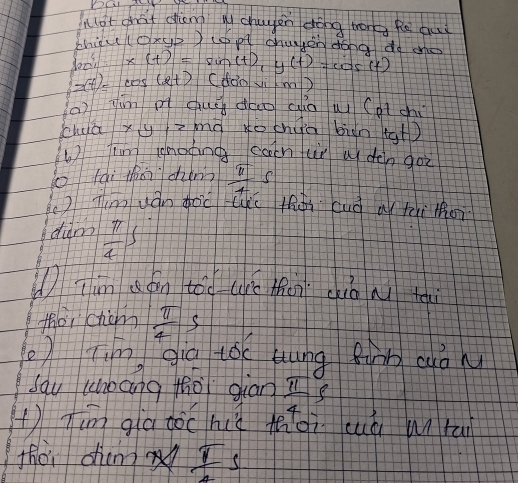 Một chất điểm M chuyển động trong hệ qui
chiếu (oxyz) có pt chuyển động do cho
bởi x(t) = sin(t), y(t) = cos(t)
z(t) = cos(2t) (đơn vị m)
a) Tìm pt quỹ đạo của M (pt chỉ
chứa x y, z mà ko chứa biến t)
b) Tìm khoảng cách từ M đến gốc
O tại thời điểm π/4 s
c) Tìm vận tốc tức thời của M tại thời
điểm π/4 s
d) Tìm vận tốc tức thời của M tại
thời điểm π/4 s
e) Tìm gia tốc trung bình của M
sau khoảng thời gian π/4 s
f) Tìm gia tốc tức thời của M tại
thời điểm π/4 s